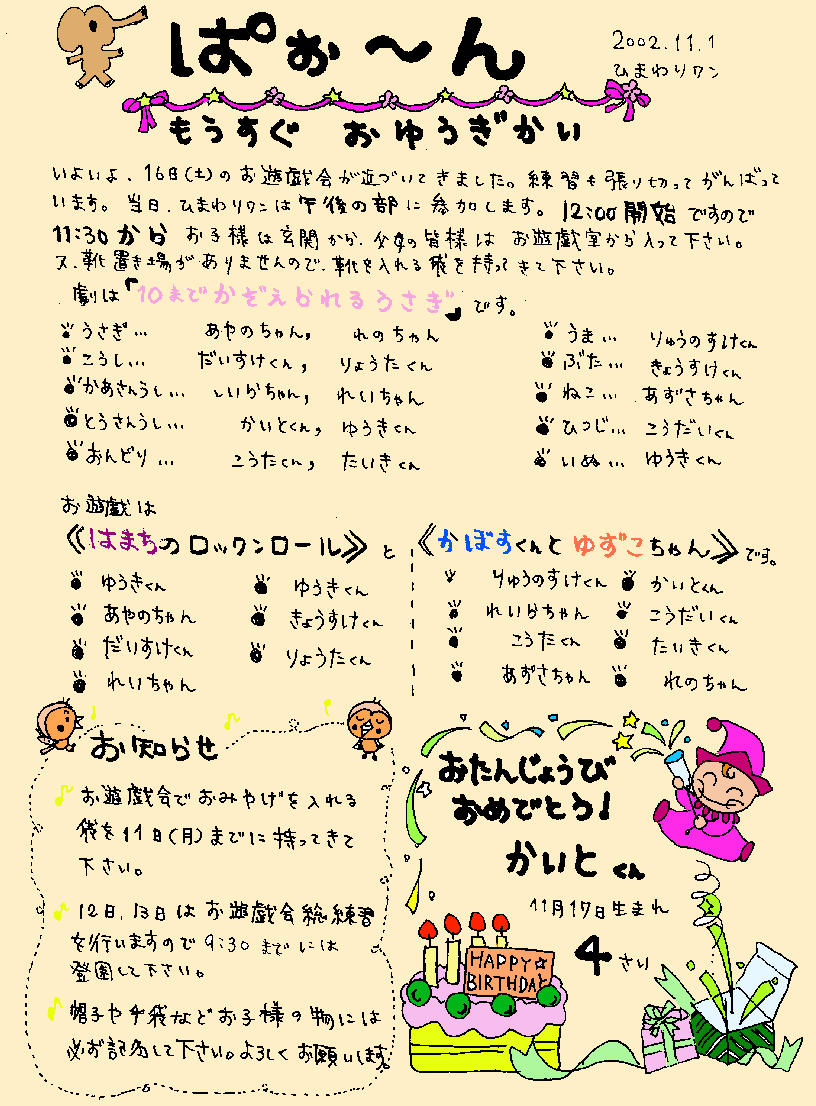 ぱぉ〜ん
2002.11.1
ひまわりワン
もうすぐ おゆうぎかい
いよいよ、16日(土)のお遊戯会が近づいてきました。練習も張り切ってがんばって
います。当日、ひまわりワンは午後の部に参加します。12:00開始ですので
11:30から お子様は玄関から、父母の皆様は お遊戯室から入って下さい。
又、靴置き場がありませんので、靴を入れる袋を持ってきて下さい。
劇は「10までかぞえられるうさぎ」です。
うさぎ… あやのちゃん, れのちゃん
こうし… だいすけくん, りょうたくん
かあさんうし… せいらちゃん, れいちゃん
とうさんうし… かいとくん, ゆうきくん
おんどり… こうたくん, たいきくん
うま… りゅうのすけくん
ぶた… きょうすけくん
ねこ… あずさちゃん
ひつじ… こうだいくん
いぬ… ゆうきくん
お遊戯は
《はまちのロックンロール》と
《かぼすくんと ゆずこちゃん》です。
ゆうきくん ゆうきくん
あやのちゃん きょうすけくん
だいすけくん りょうたくん
れいちゃん
りゅうのすけくん かいとくん
れいらちゃん こうだいくん
こうたくん たいきくん
あずさちゃん れのちゃん
お知らせ
♪ お遊戯会でおみやげを入れる
袋を11日(月)までに持ってきて
下さい。
♪ 12日、13日はお遊戯会総練習
を行いますので9:30までには
登園して下さい。
♪ 帽子や手袋などお子様の物には
必ず記名して下さい。よろしくお願いします。
おたんじょうび
おめでとう!
かいとくん
11月17日生まれ
4さい
HAPPY☆
BIRTHDAY